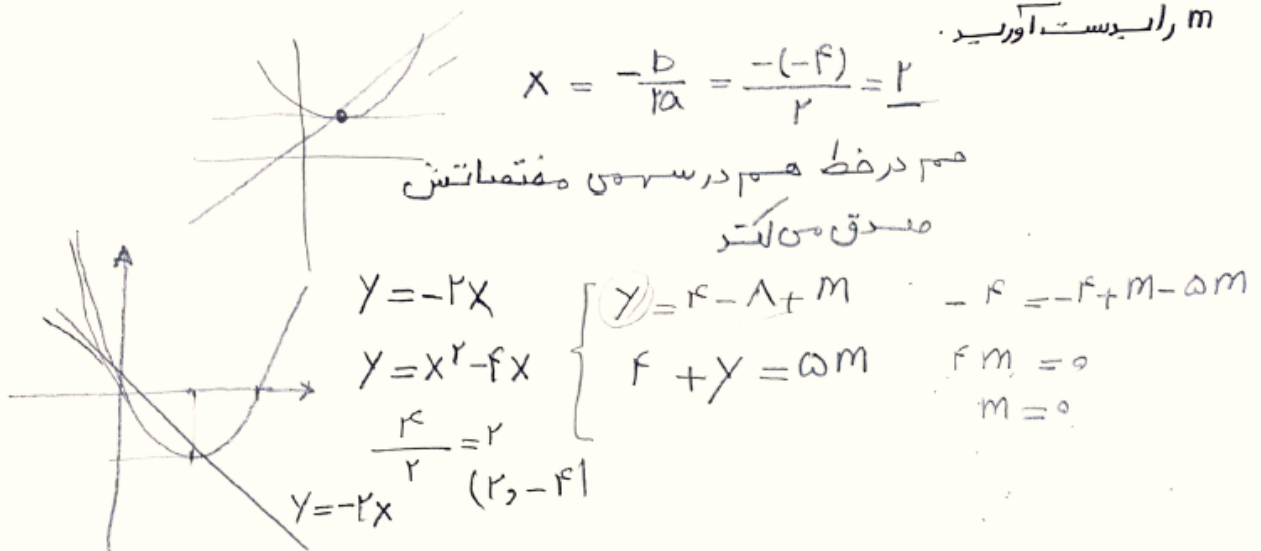 m را بدست آورید.
X = -b/۲a = -(-۴)/۲ = ۲
هم در خط هم در سهمی مختصاتش
صدق می کند
y = -۲x
y = x^۲ - ۴x
۴/۲ = ۲
(۲, -۴)
y = -۲x
y = ۴ - ۸ + m
۴ + y = ۵m
- ۴ = -۴ + m - ۵m
۴m = ۰
m = ۰